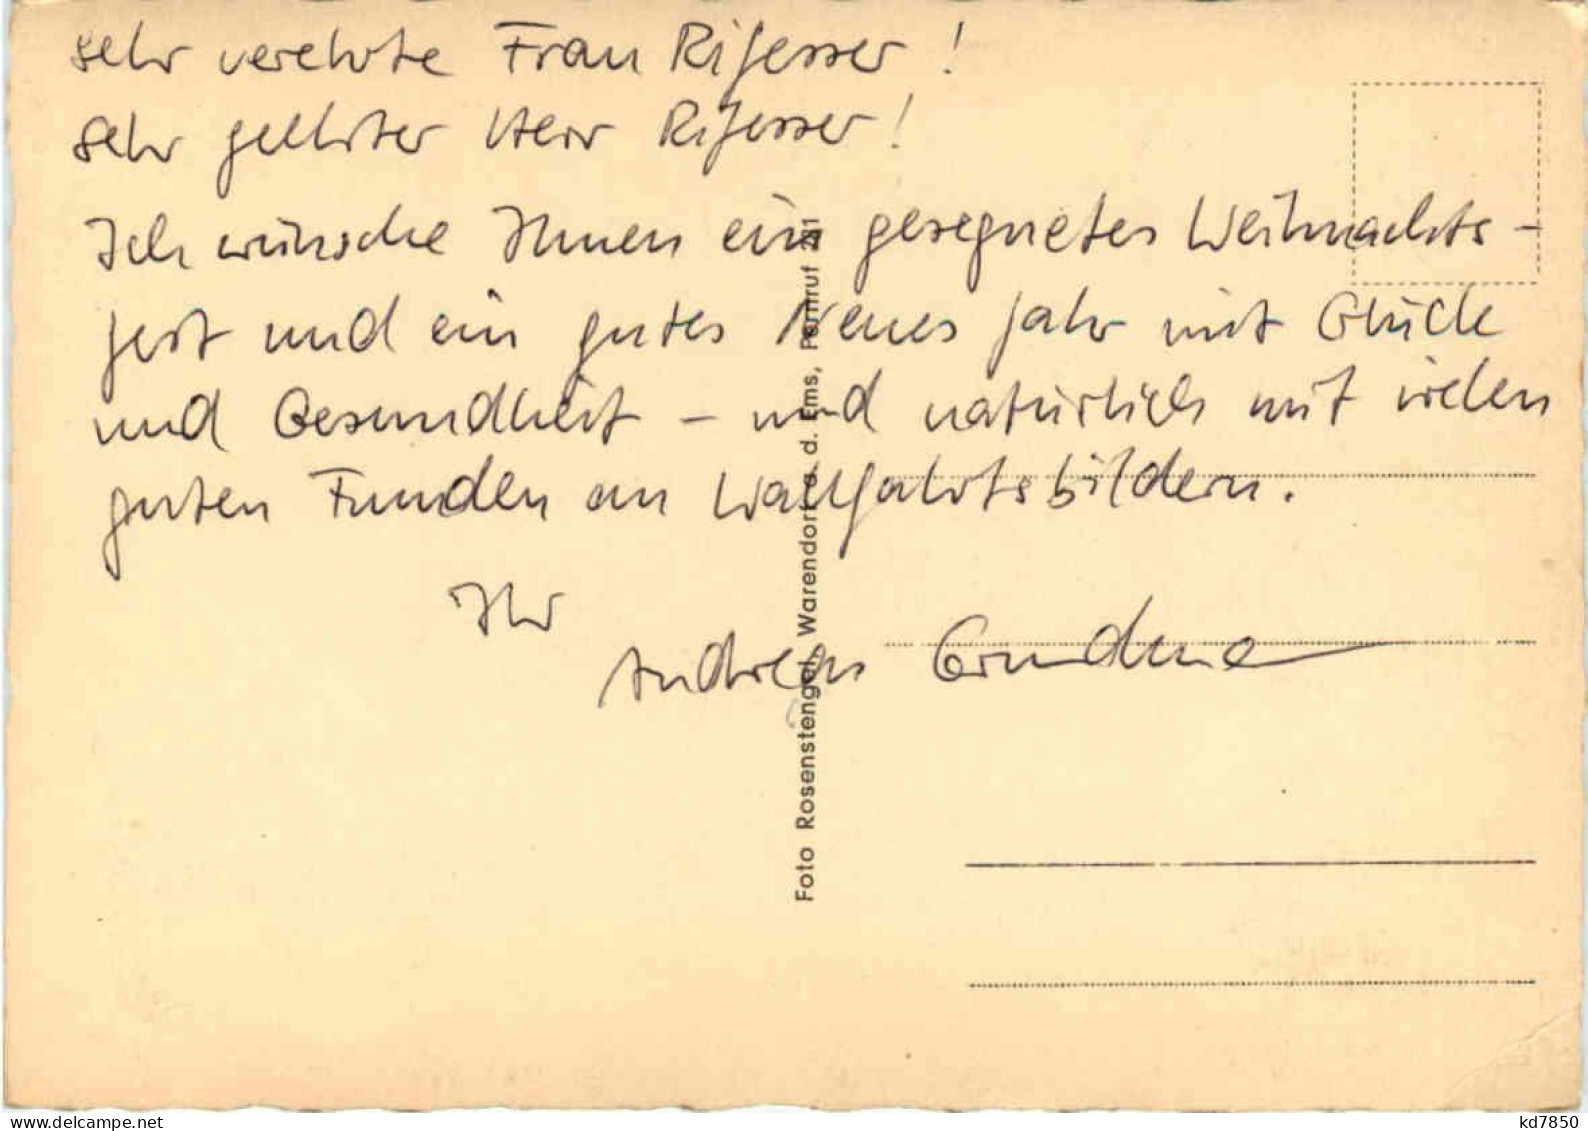 sehr verehrte Frau Rifesser!
sehr geehrter Herr Rifesser!
Ich wünsche Ihnen ein gesegnetes Weihnachts-
fest und ein gutes Neues Jahr mit Glück
und Gesundheit – und natürlich mit vielen
guten Funden an Wallfahrtsbildern.
Ihr
Andreas
Foto Rosenstengel, Warendorf a. d. Ems, Fernruf
delcampe.net
kd7850